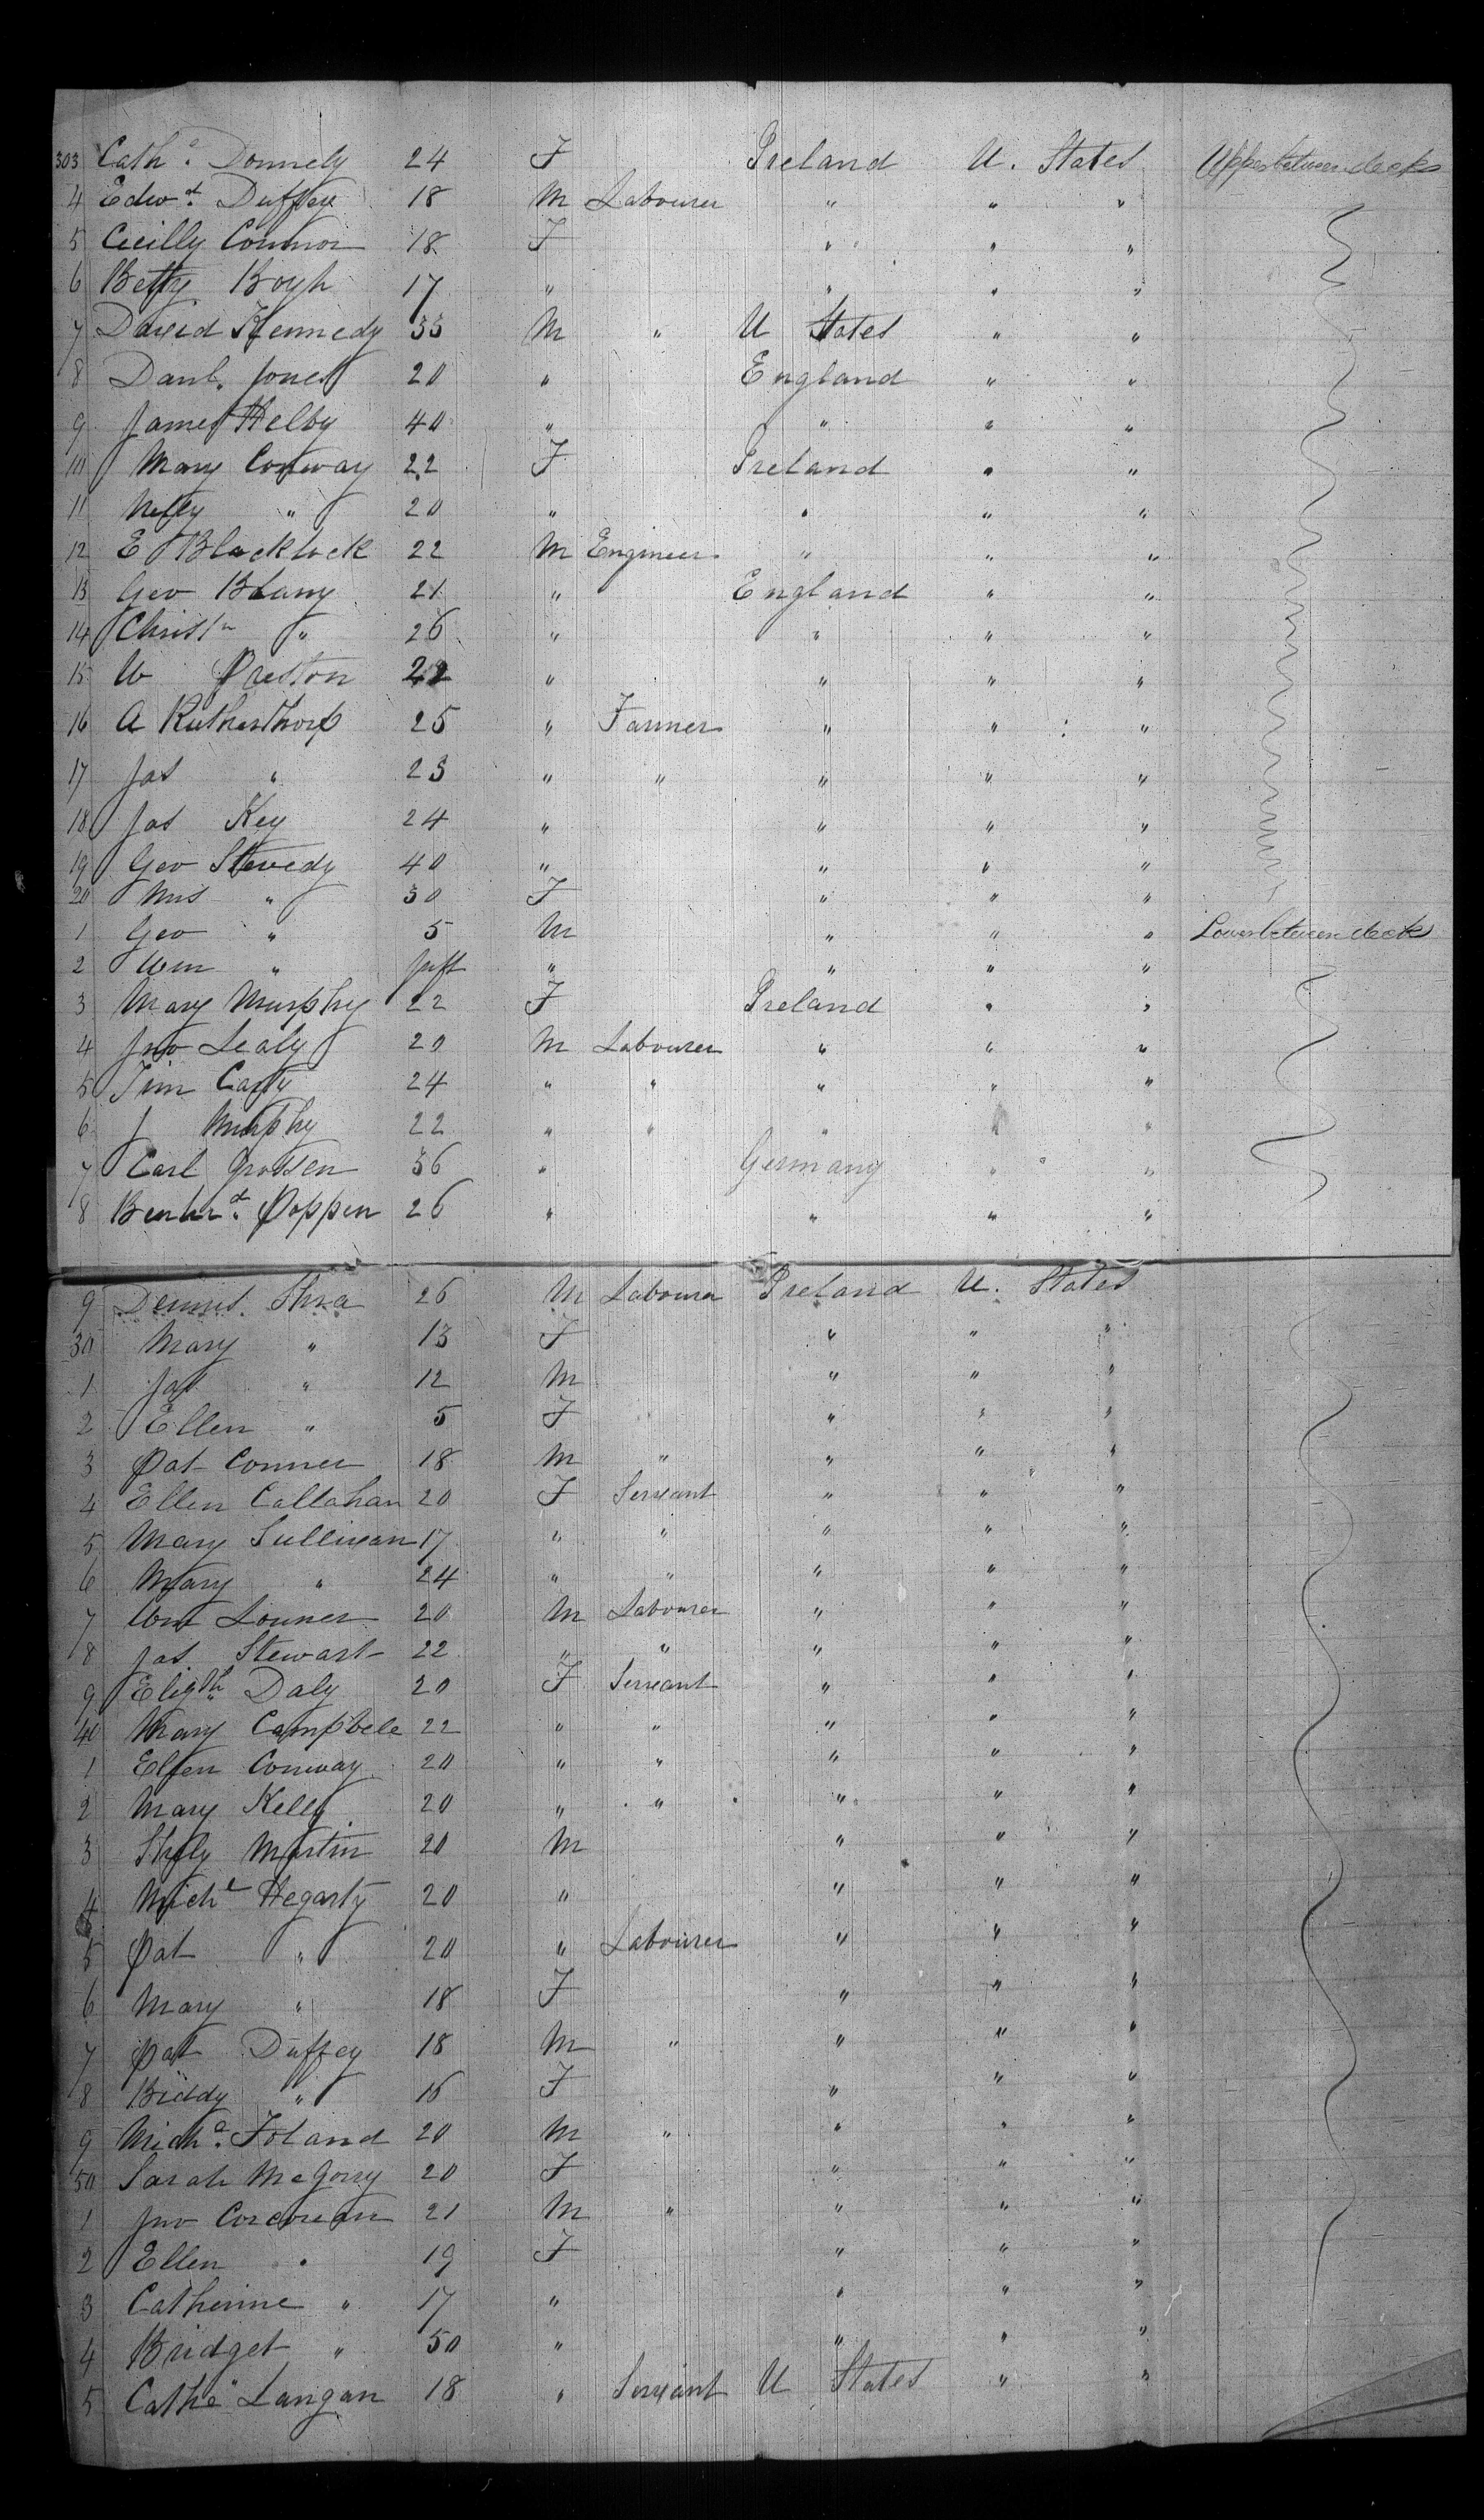 303 Cathe. Donnely 24 F Ireland U. States Upper between decks
4 Edwd. Duffey 18 M Labourer " " "
5 Cicilly Connor 18 F " " "
6 Betty 17 " " " "
7 David Kennedy 33 M " U States " "
8 Danl. Jones 20 " England " "
9 James Helby 40 " " " "
10 Mary Conway 22 F Ireland " "
11 " 20 " " " "
12 E Blacklock 22 M Engineer " " "
13 Geo 21 " England " "
14 Christn " 26 " " " "
15 W Preston 22 " " " "
16 A 25 " Farmer " " "
17 Jas " 23 " " " " "
18 Jas Key 24 " " " "
19 Geo 40 " " " "
20 Mrs " 30 F " " "
1 Geo " 5 M " " " Lower between decks
2 Wm " Inft " " " "
3 Mary Murphy 22 F Ireland " "
4 Jno Lealy 20 M Labourer " " "
5 Tim Carty 24 " " " " "
6 J Murphy 22 " " " " "
7 Carl Grossen 36 " Germany " "
8 Poppen 26 " " " "
9 Dennis Shea 26 M Labourer Ireland U. States
30 Mary " 13 F " " "
1 Jas " 12 M " " "
2 Ellen " 5 F " " "
3 Pat Conner 18 M " " " "
4 Ellen Callahan 20 F Servant " " "
5 Mary Sullivan 17 " " " " "
6 Mary " 24 " " " " "
7 Wm 20 M Labourer " " "
8 Jas Stewart 22 " " " " "
9 Elizth Daly 20 F Servant " " "
40 Mary Campbele 22 " " " " "
1 Ellen Conway 20 " " " " "
2 Mary Kelly 20 " " " " "
3 Martin 20 M " " "
4 Michl Hegarty 20 " " " "
5 Pat " 20 " Labourer " " "
6 Mary " 18 F " " "
7 Pat Duffey 18 M " " " "
8 Biddy " 16 F " " "
9 Michl. Foland 20 M " " " "
50 Sarah McGorry 20 F " " "
1 Jno Corcoran 21 M " " " "
2 Ellen " 19 F " " "
3 Catherine " 17 " " " "
4 Bridget " 50 " " " "
5 Cathe Langan 18 " Servant U States " "